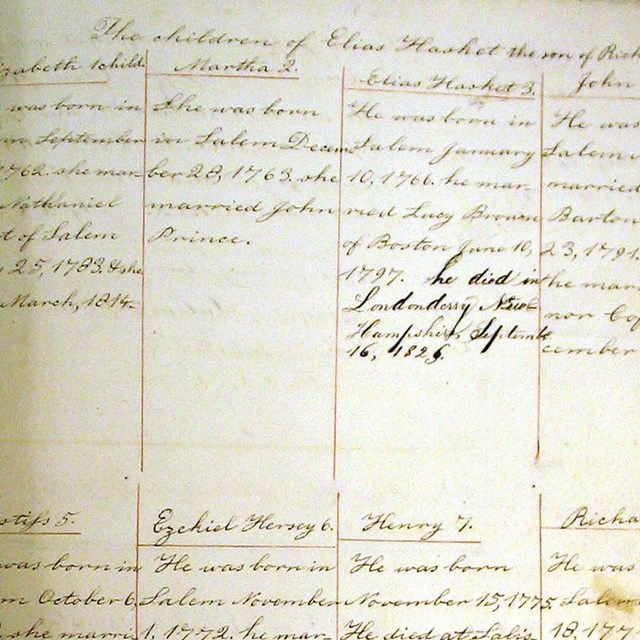 The children of Elias Hasket the son of Rich
zabeth 1 child.
was born in
m September
1762. she mar-
Nathaniel
t of Salem
25, 1783. & she
March, 1814
Martha 2.
She was born
in Salem Decem-
ber 28, 1763. she
married John
Prince.
Elias Hasket 3.
He was born in
Salem January
10, 1766. he mar-
ried Lucy Brown
of Boston June 10,
1797. he died in
Londonderry New
Hampshire, Septemb
16, 1826.
John
He was
Salem
married
Barton
23, 1791.
he marr
nor Cof
cember
5.
was born in
m October 6,
she marri
Ezekiel Hersey 6.
He was born in
Salem November
1, 1772. he mar-
Henry 7.
He was born
November 15, 1775.
He died at Calis
Richa
He was
Salem
18, 177